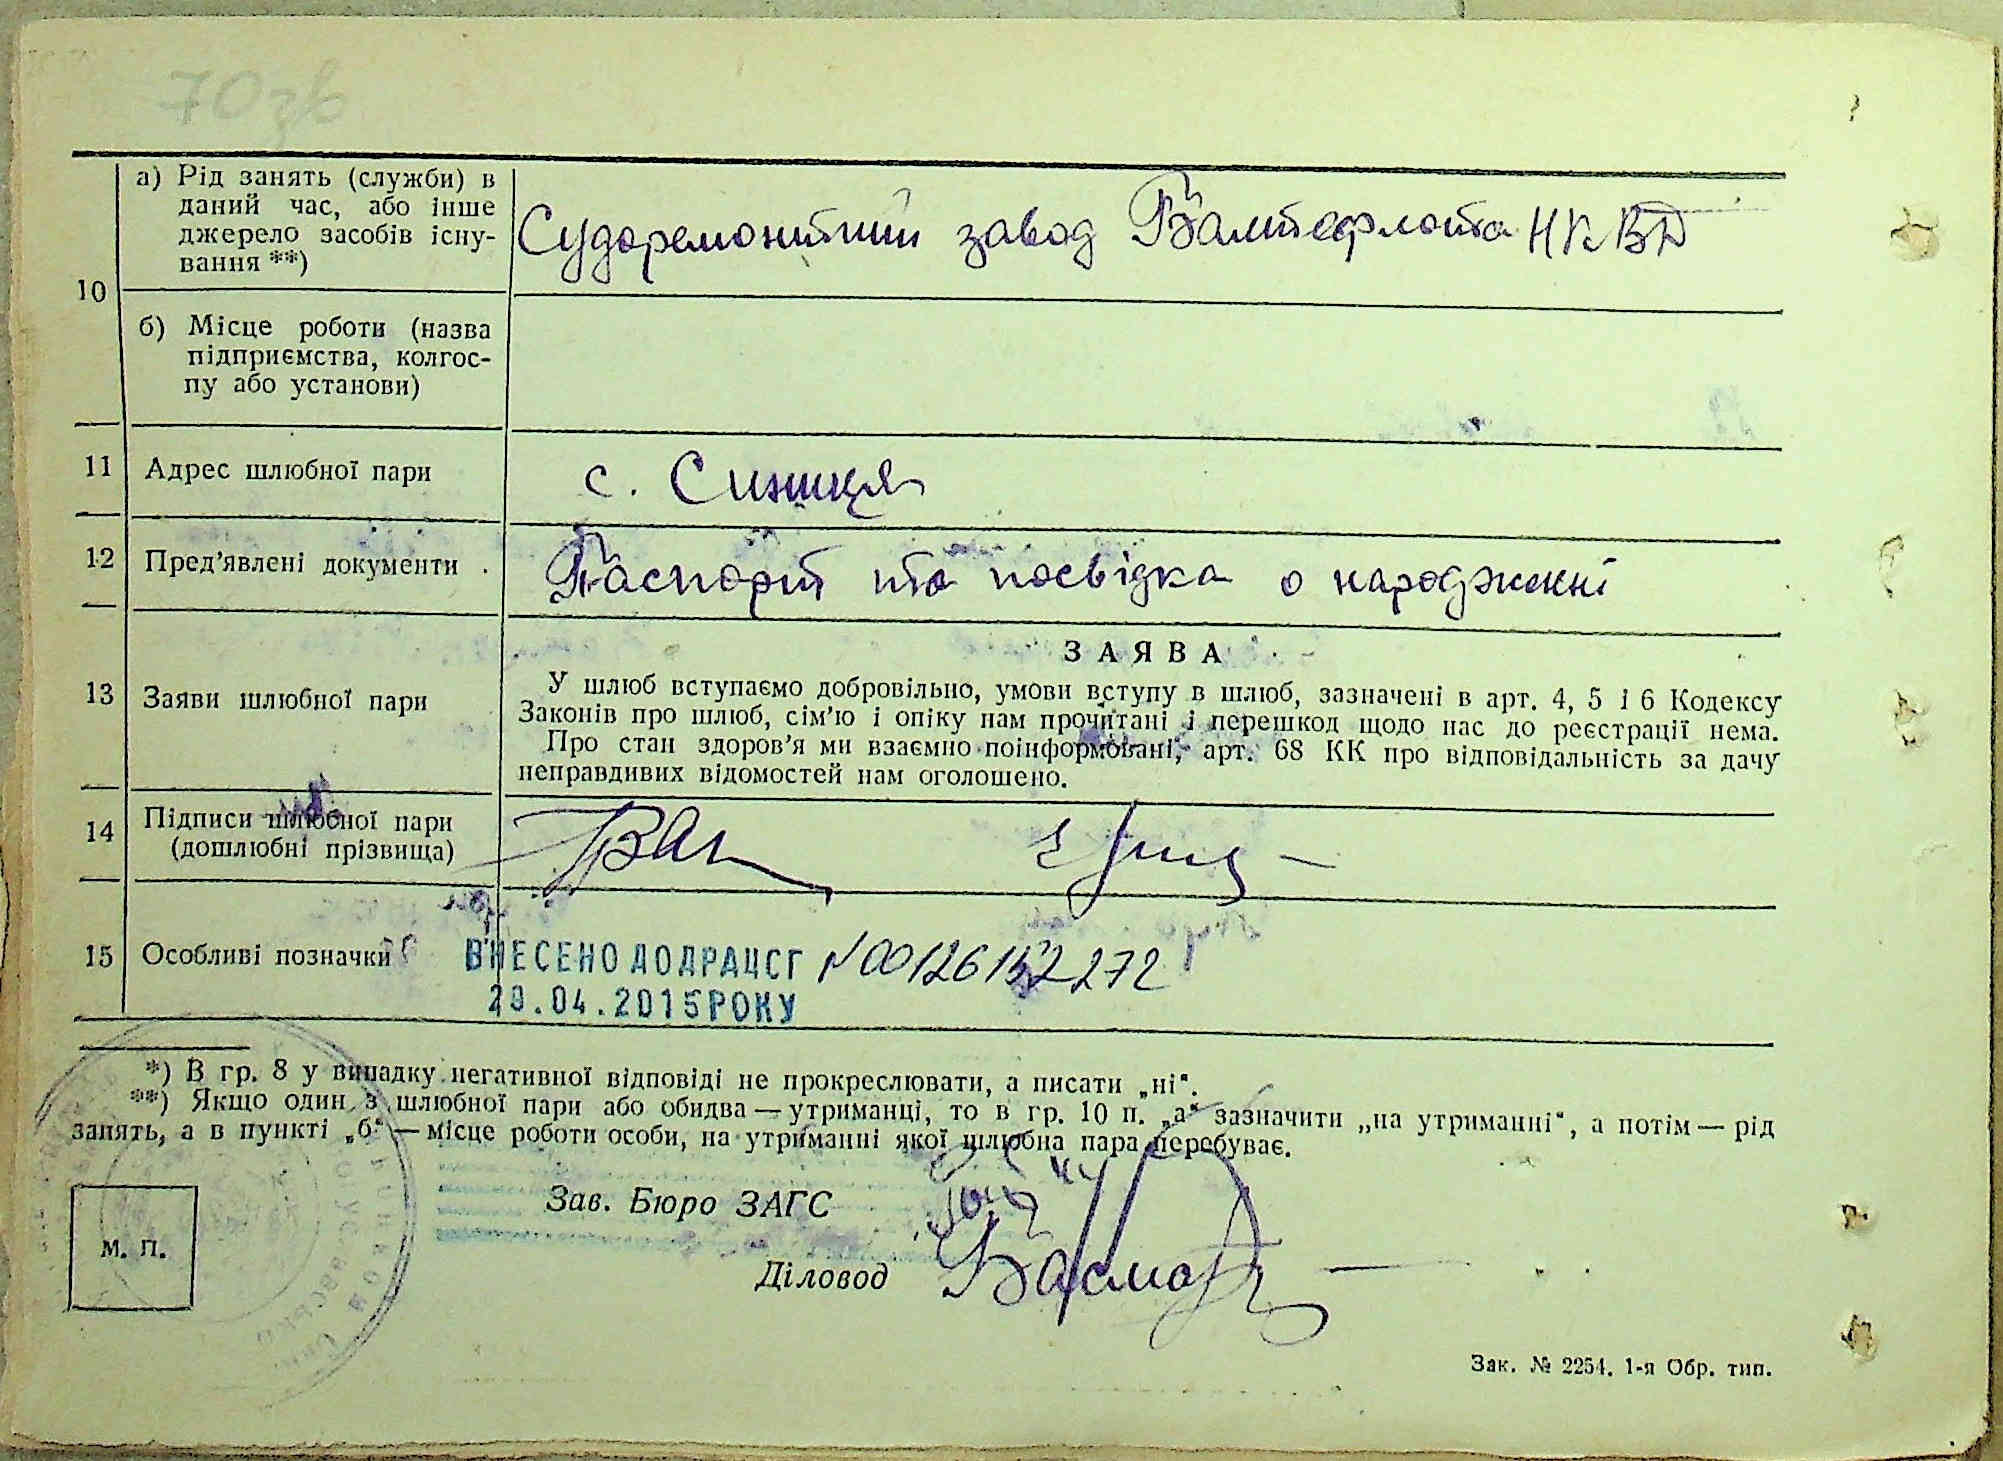 70зв
а) Рід занять (служби) в
даний час, або інше
джерело засобів існу-
вання **)
Судоремонтний завод Балтефлота НКВД
10
б) Місце роботи (назва
підприємства, колгос-
пу або установи)
11 Адрес шлюбної пари
с.
12 Пред'явлені документи .
Паспорт та посвідка о народженні
ЗАЯВА
13 Заяви шлюбної пари
У шлюб вступаємо добровільно, умови вступу в шлюб, зазначені в арт. 4, 5 і 6 Кодексу
Законів про шлюб, сім'ю і опіку нам прочитані і перешкод щодо нас до реєстрації нема.
Про стан здоров'я ми взаємно поінформовані, арт. 68 КК про відповідальність за дачу
неправдивих відомостей нам оголошено.
14 Підписи шлюбної пари
(дошлюбні прізвища)
15 Особливі позначки
ВНЕСЕНО ДО ДРАЦСГ N00126152272
28.04.2015 РОКУ
*) В гр. 8 у випадку негативної відповіді не прокреслювати, а писати „ні“.
**) Якщо один з шлюбної пари або обидва — утриманці, то в гр. 10 п. „а“ зазначити „на утриманні“, а потім — рід
занять, а в пункті „б“ — місце роботи особи, на утриманні якої шлюбна пара перебуває.
Зав. Бюро ЗАГС
м. п.
Діловод
Зак. № 2254. 1-я Обр. тип.